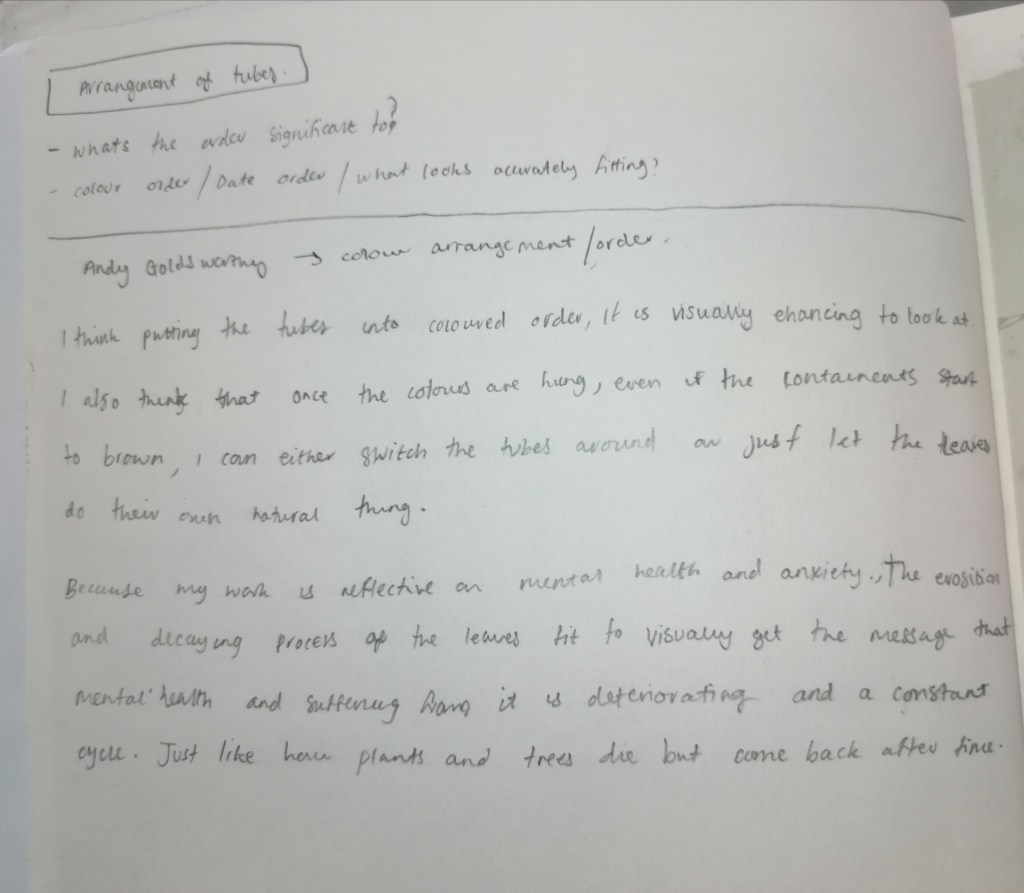 Arrangement of tubes.
- whats the order significant to?
- colour order / Date order / what looks accurately fitting?
Andy Goldsworthy → colour arrangement / order.
I think putting the tubes into coloured order, it is visually ehancing to look at
I also think that once the colours are hung, even if the containents start
to brown, I can either switch the tubes around or just let the leaves
do their own natural thing.
Because my work is reflective on mental health and anxiety., The erosition
and decaying process of the leaves fit to visually get the message that
mental health and suffering from it is deteriorating and a constant
cycle. Just like how plants and trees die but come back after time.